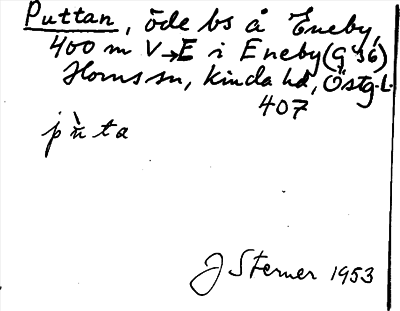 Puttan, öde bs å Eneby,
400 m V→E i Eneby (G 36)
Horns sn, Kinda hd, Östg. L.
407
pùta
J Sterner 1953